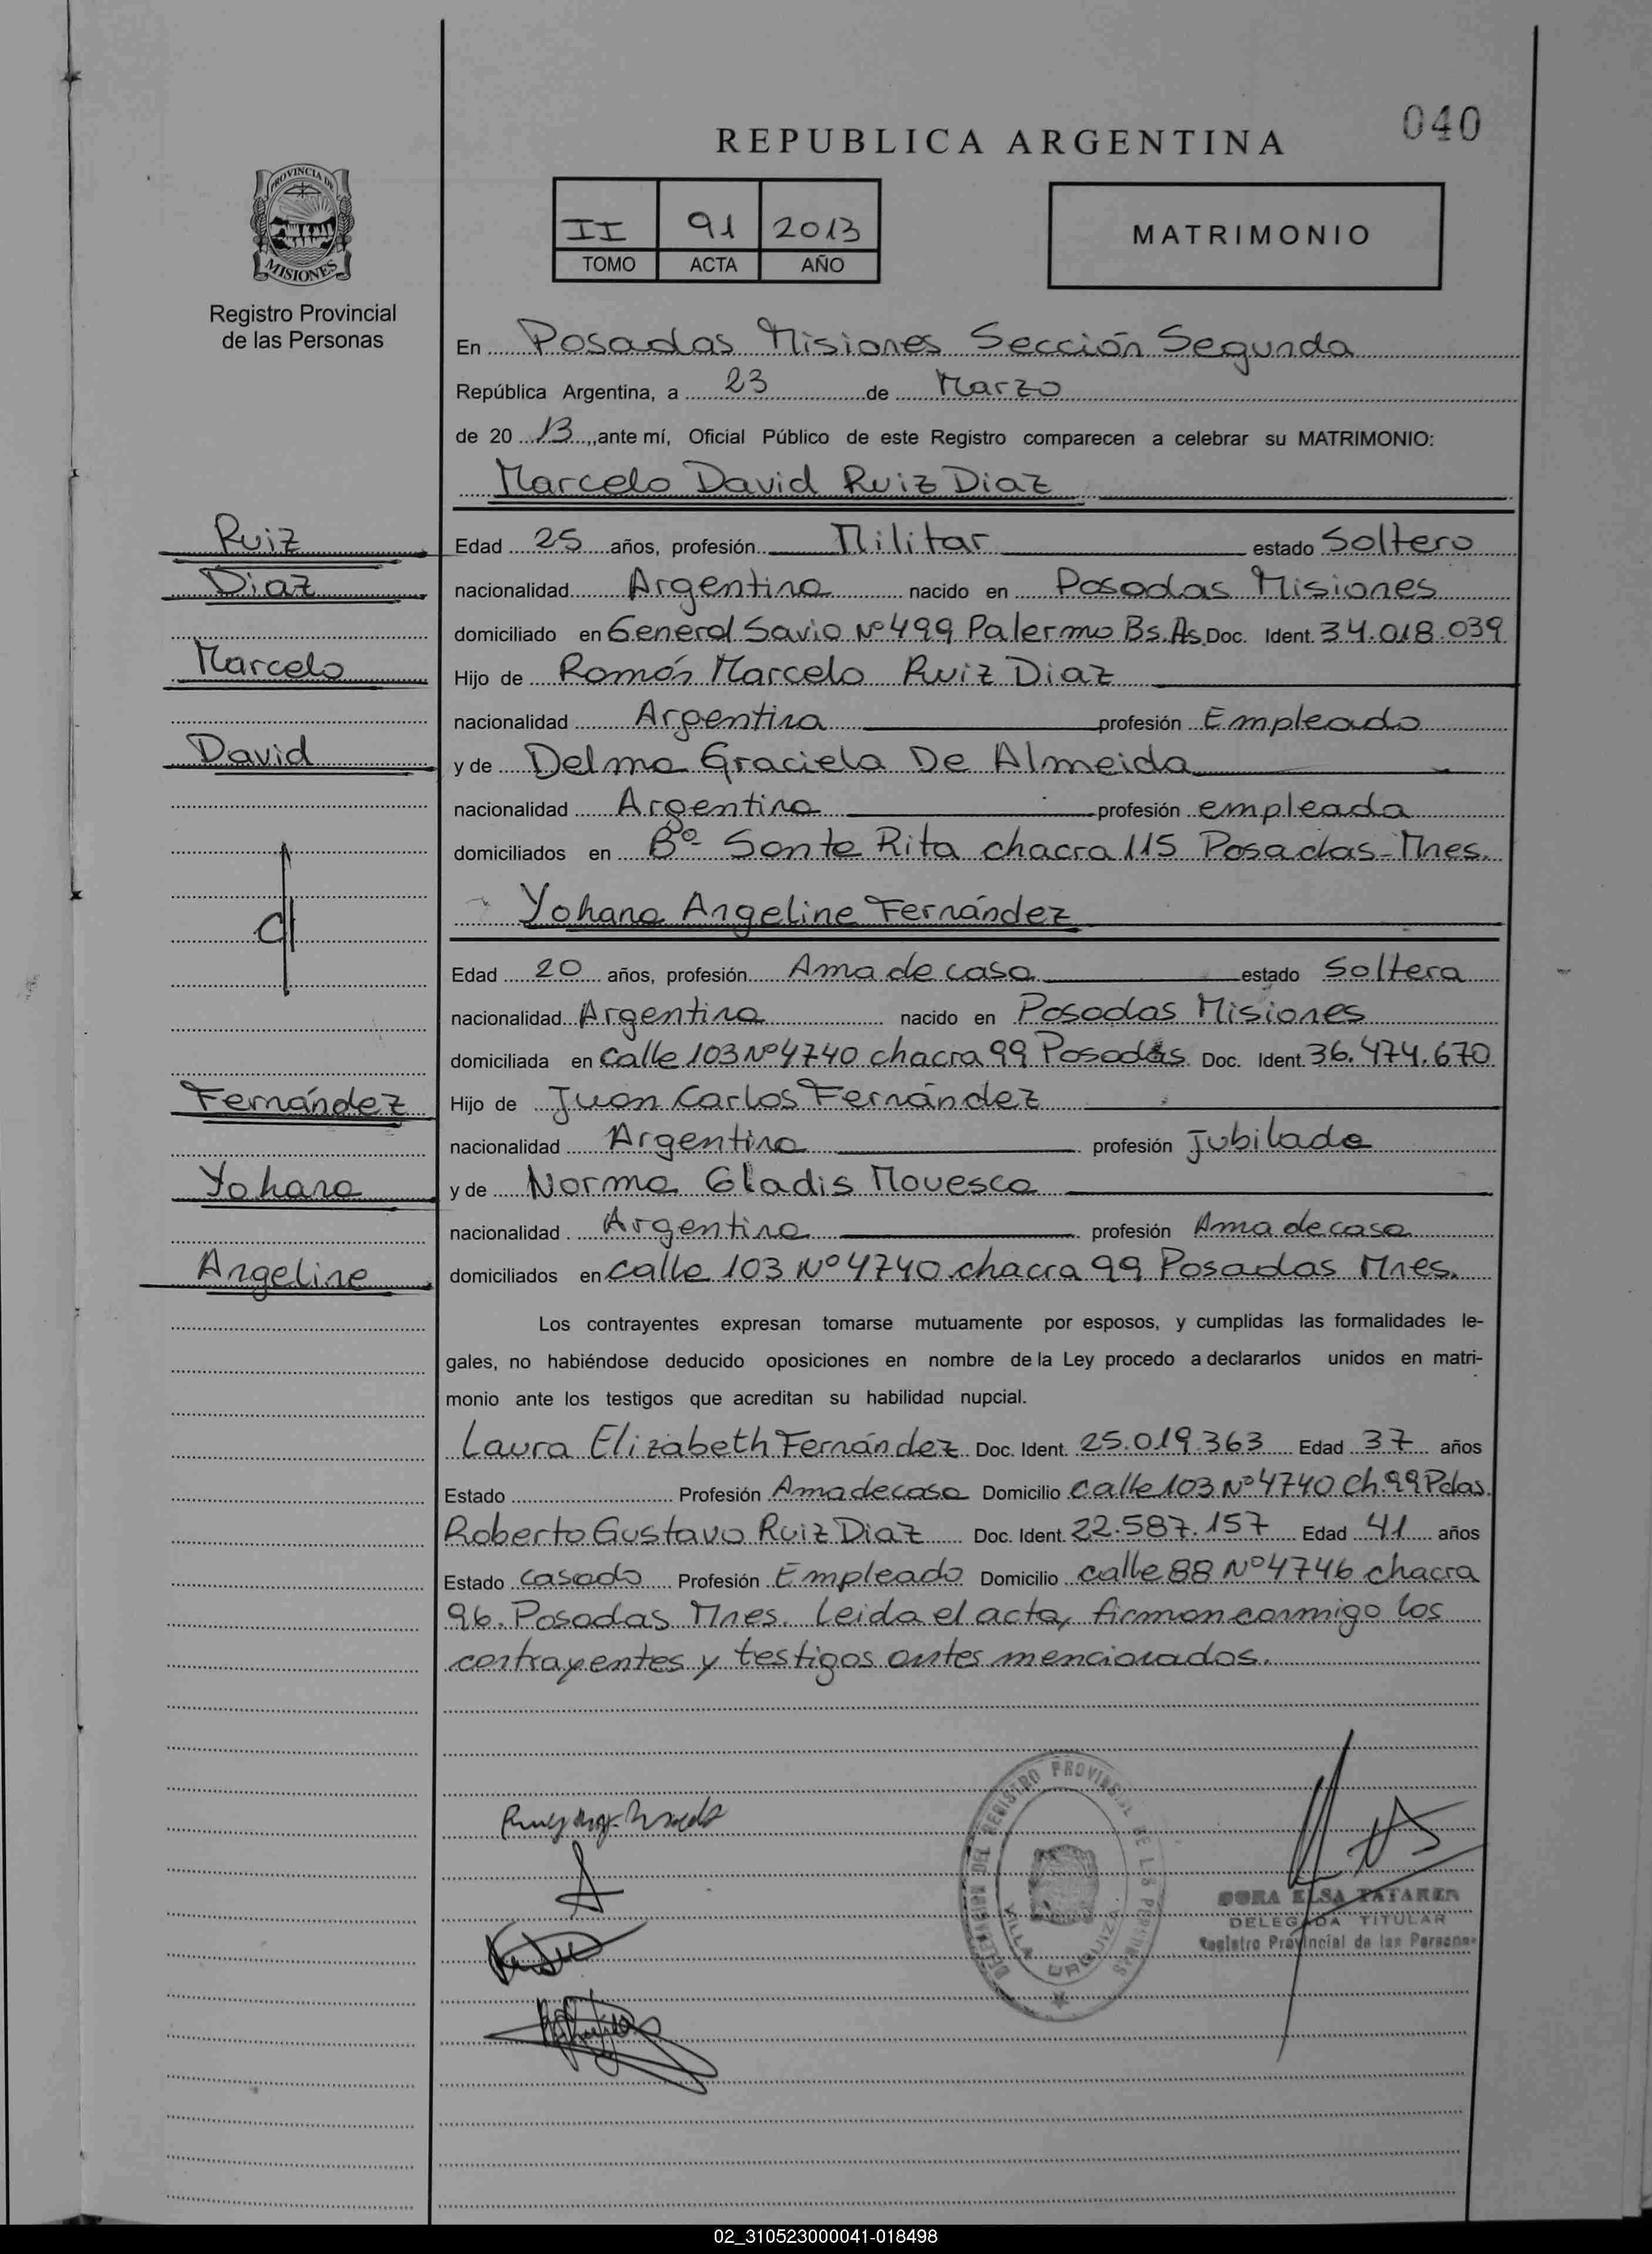 040
REPUBLICA ARGENTINA
II 91 2013
TOMO ACTA AÑO
MATRIMONIO
PROVINCIA DE
MISIONES
Registro Provincial
de las Personas
En Posadas Misiones Sección Segunda
República Argentina, a 23 de Marzo
de 20 13, ante mí, Oficial Público de este Registro comparecen a celebrar su MATRIMONIO:
Marcelo David Ruiz Diaz
Ruiz
Edad 25 años, profesión Militar estado Soltero
Diaz
nacionalidad Argentina nacido en Posadas Misiones
domiciliado en General Savio Nº 499 Palermo Bs.As. Doc. Ident. 34.018.039
Marcelo
Hijo de Ramón Marcelo Ruiz Diaz
nacionalidad Argentina profesión Empleado
David
y de Delma Graciela De Almeida
nacionalidad Argentina profesión empleada
domiciliados en Bº Santa Rita chacra 115 Posadas-Mnes.
Yohana Angeline Fernández
Edad 20 años, profesión Ama de casa estado Soltera
nacionalidad Argentina nacido en Posadas Misiones
domiciliada en calle 103 Nº 4740 chacra 99 Posadas Doc. Ident. 36.474.670
Fernández
Hijo de Juan Carlos Fernández
nacionalidad Argentina profesión Jubilado
Yohana
y de Norma Gladis
nacionalidad Argentina profesión Ama de casa
Angeline
domiciliados en calle 103 Nº 4740 chacra 99 Posadas Mnes.
Los contrayentes expresan tomarse mutuamente por esposos, y cumplidas las formalidades le-
gales, no habiéndose deducido oposiciones en nombre de la Ley procedo a declararlos unidos en matri-
monio ante los testigos que acreditan su habilidad nupcial.
Laura Elizabeth Fernández Doc. Ident. 25.019.363 Edad 37 años
Estado Profesión Ama de casa Domicilio calle 103 Nº 4740 Ch. 99 Pdas.
Roberto Gustavo Ruiz Diaz Doc. Ident. 22.587.157 Edad 41 años
Estado casado Profesión Empleado Domicilio calle 88 Nº 4746 chacra
96. Posadas Mnes. Leida el acta, firman conmigo los
contrayentes y testigos antes mencionados.
DELEGACION DEL REGISTRO PROVINCIAL DE LAS PERSONAS
VILLA URQUIZA
DORA ELSA
DELEGADA TITULAR
Registro Provincial de las Personas
02_310523000041-018498